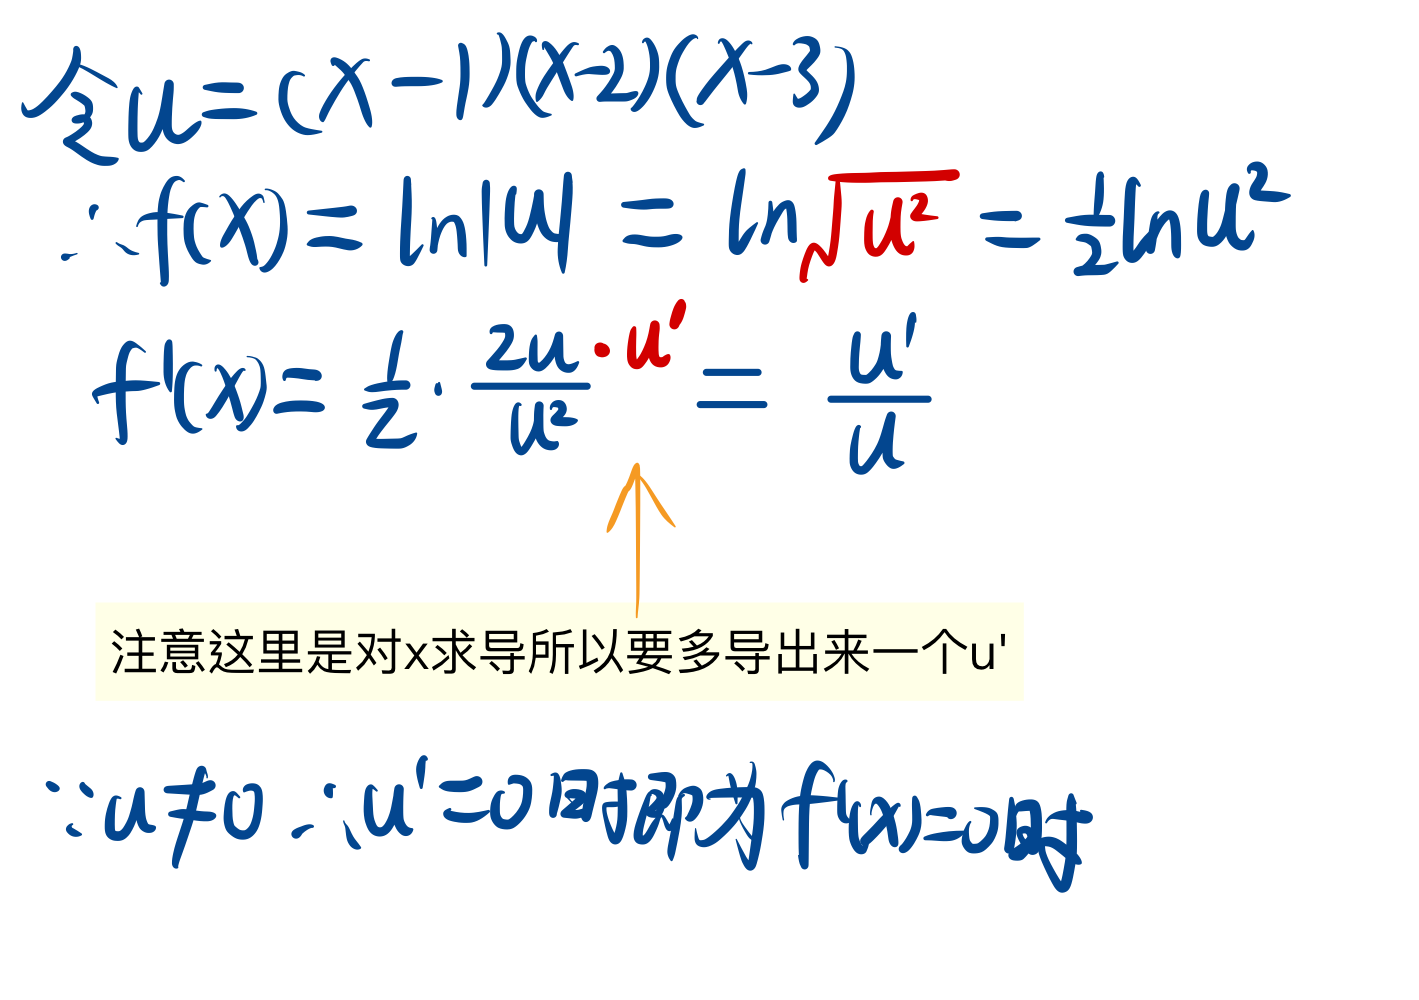 令u=(x-1)(x-2)(x-3)
∴f(x)=ln|u|=ln√u²=½lnu²
f'(x)=1/2·2u/u²·u'=u'/u
注意这里是对x求导所以要多导出来一个u'
∵u≠0 ∴u'=0时即为f'(x)=0时